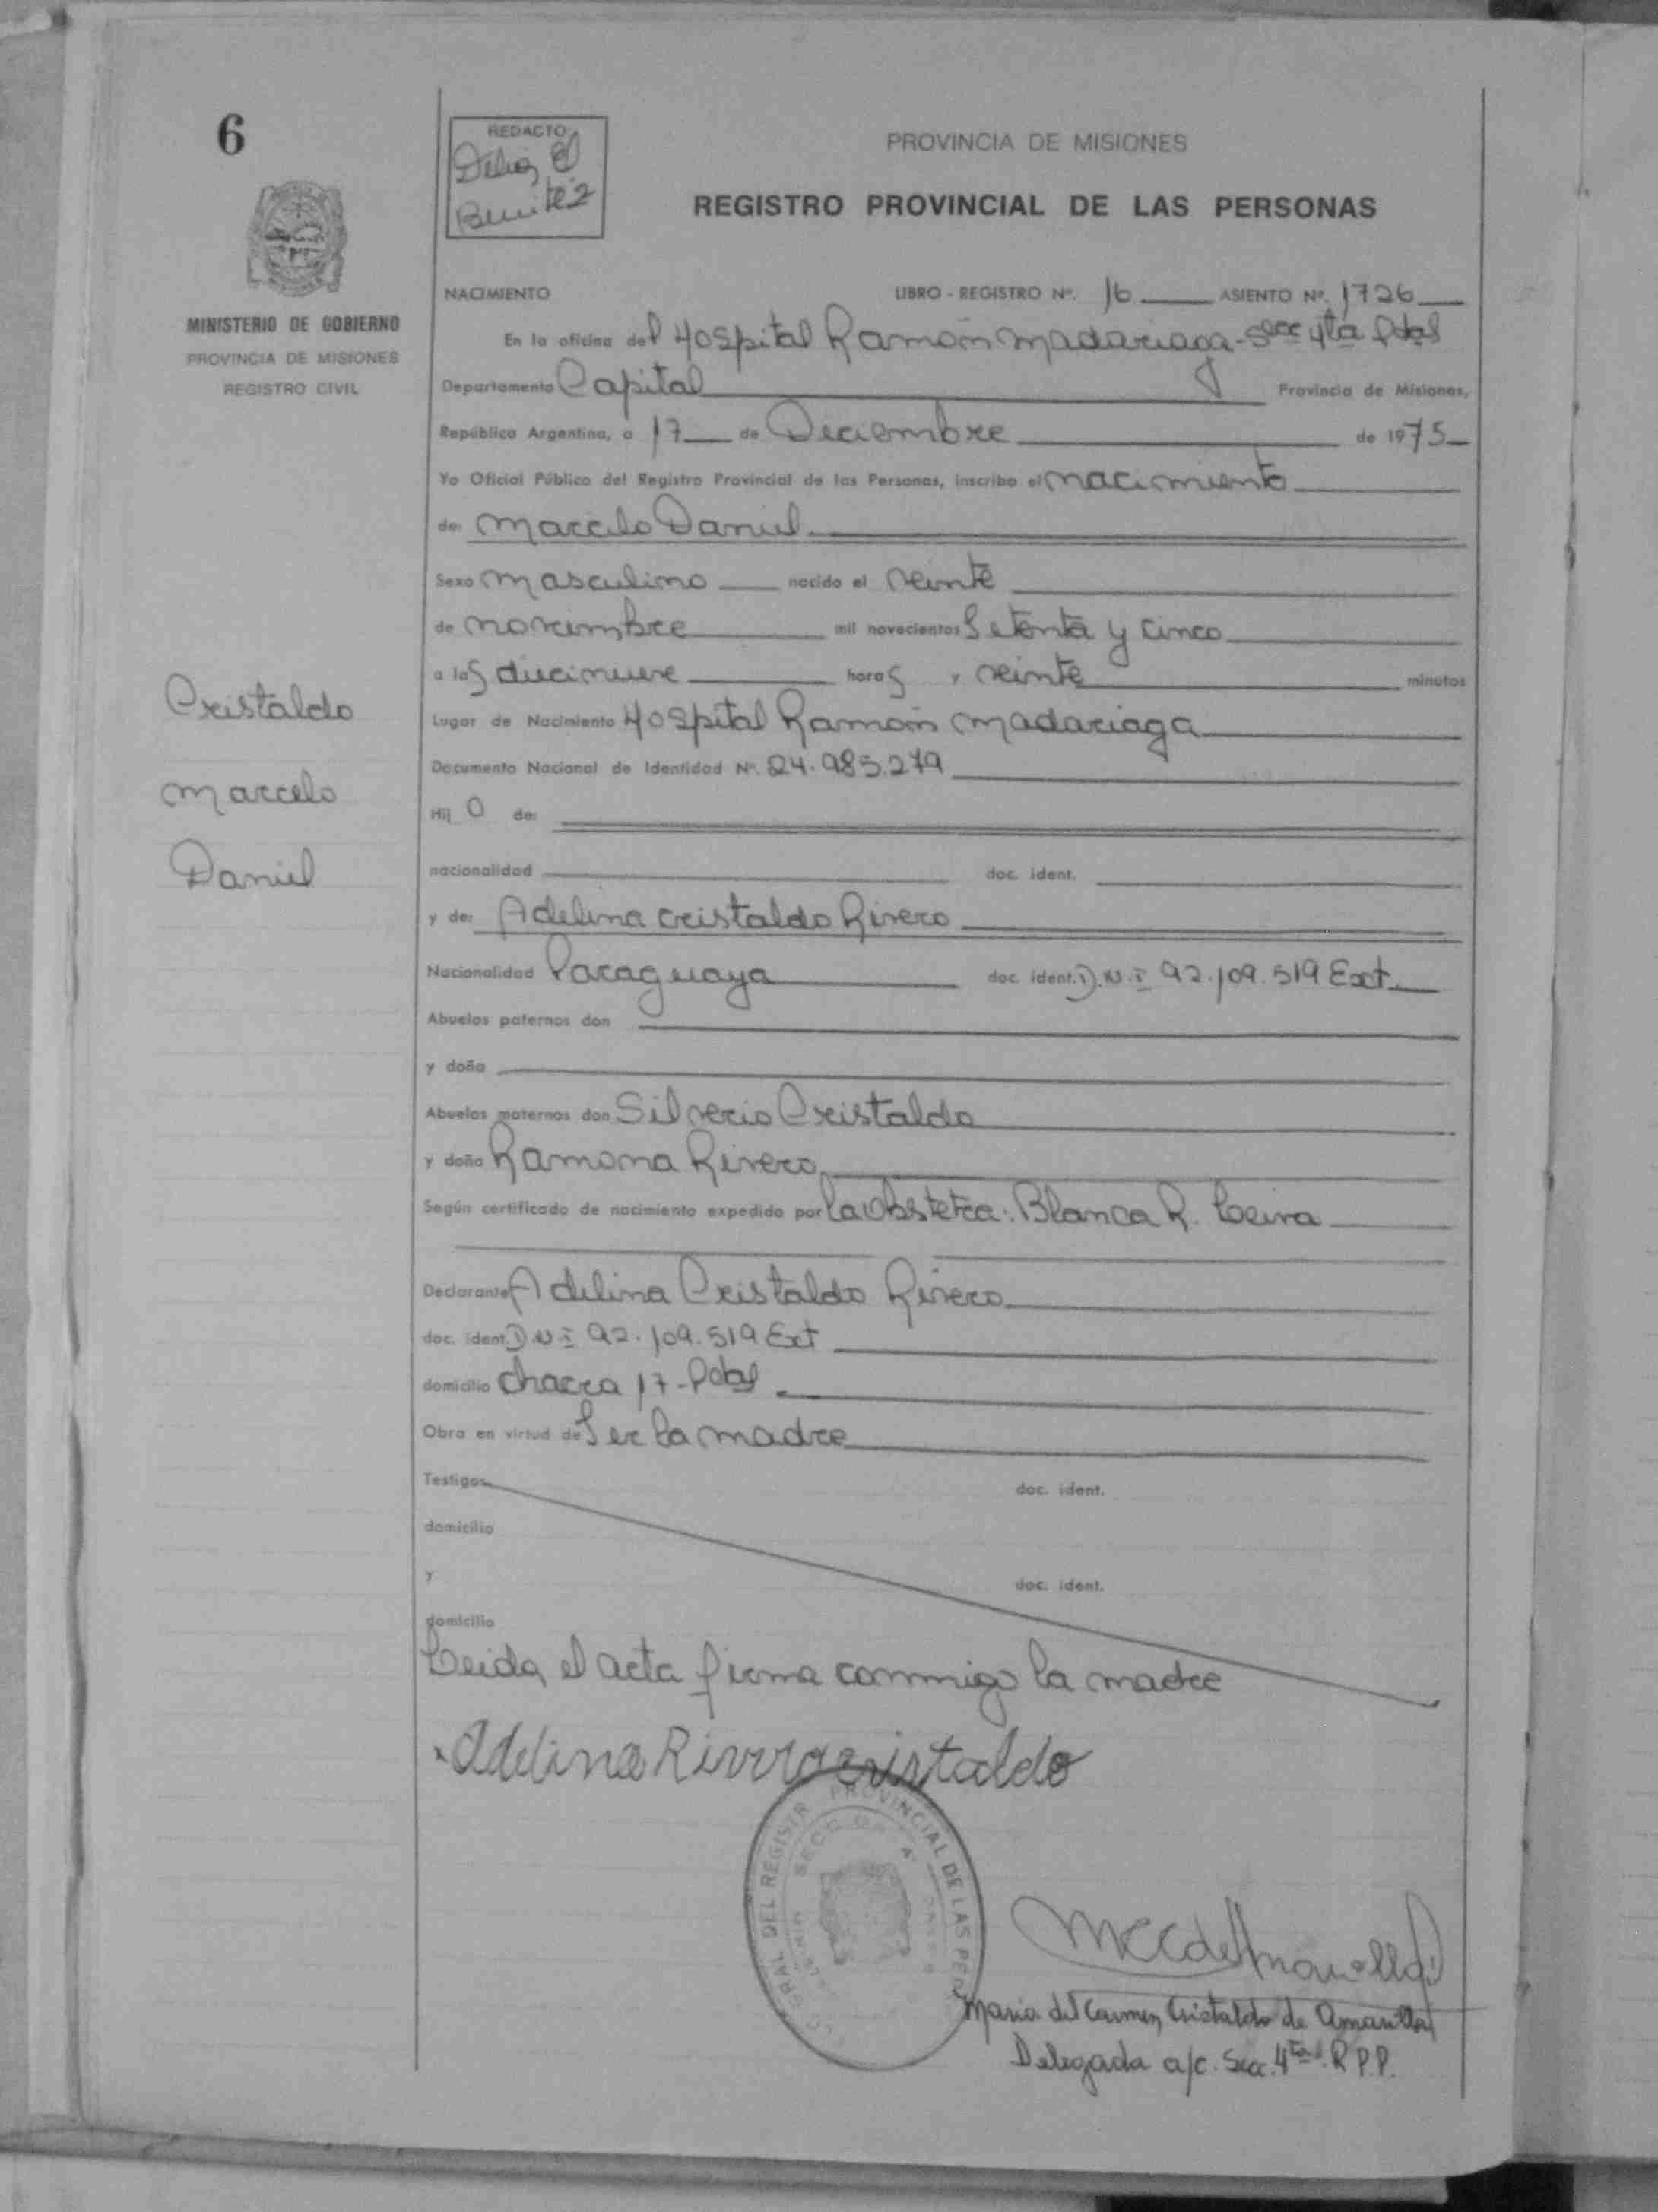 6
REDACTO:
Delia E
Benitez
PROVINCIA DE MISIONES
REGISTRO PROVINCIAL DE LAS PERSONAS
MINISTERIO DE GOBIERNO
PROVINCIA DE MISIONES
REGISTRO CIVIL
NACIMIENTO LIBRO - REGISTRO Nº. 16 ASIENTO Nº. 1726
En la oficina del Hospital Ramón Madariaga - Secc 4ta Pdas
Departamento Capital Provincia de Misiones,
República Argentina, a 17 de Deciembre de 1975
Yo Oficial Público del Registro Provincial de las Personas, inscribo el nacimiento
de: Marcelo Daniel
Sexo Masculino nacido el veinte
de noviembre mil novecientos Setenta y cinco
a las diecinueve horas y veinte minutos
Lugar de Nacimiento Hospital Ramón Madariaga
Documento Nacional de Identidad Nº. 24.985.279
Hij O de:
nacionalidad doc. ident.
y de: Adelina Cristaldo Rivero
Nacionalidad Paraguaya doc. ident. D.N.I 92.109.519 Ext
Abuelos paternos don
y doña
Abuelos maternos don Silverio Cristaldo
y doña Ramona Rivero
Según certificado de nacimiento expedido por la Obstetra: Blanca R. Leiva
Declarante Adelina Cristaldo Rivero
doc. ident. D.N.I 92.109.519 Ext
domicilio chacra 17 - Pdas
Obra en virtud de Ser la madre
Testigos doc. ident.
domicilio
y doc. ident.
domicilio
Leida el acta firma conmigo la madre
Adelina Rivero Cristaldo
Cristaldo
Marcelo
Daniel
GRAL DEL REGISTR PROVINCIAL DE LAS PER
Maria del Carmen Cristaldo de Amarilla
Delegada a/c. Secc. 4ta R.P.P.